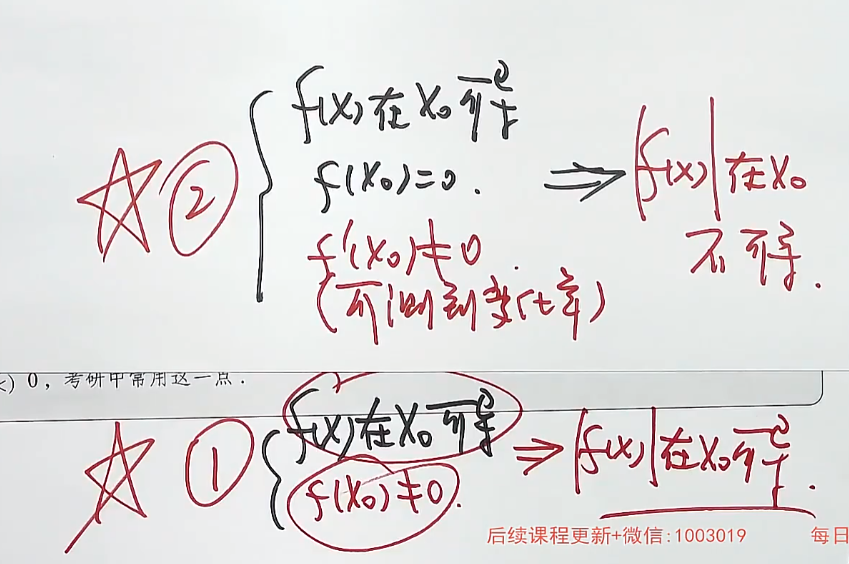 ② { f(x)在x₀可导
f(x₀)=0.
f'(x₀)≠0
(可测到变化率)
⇒ |f(x)|在x₀
不可导.
) 0, 考研中常用这一点.
① { f(x)在x₀可导
f(x₀)≠0.
⇒ |f(x)|在x₀可导.
后续课程更新+微信:1003019 每日